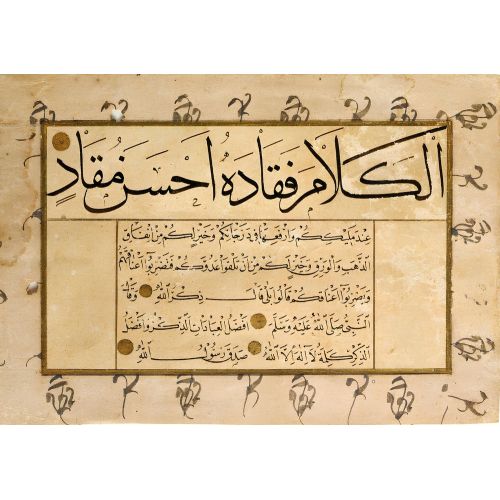 الكلام فقاده احسن مقاد
عند مليككم وارفعها في درجاتكم وخير لكم من انفاق
الذهب والورق وخير لكم من ان تلقوا عدوكم فتضربوا اعناقهم
ويضربوا اعناقكم قالوا بلى قال ذكر الله وقال
النبي صلى الله عليه وسلم افضل العبادات الذكر وافضل
الذكر كلمة لا اله الا الله صدق رسول الله